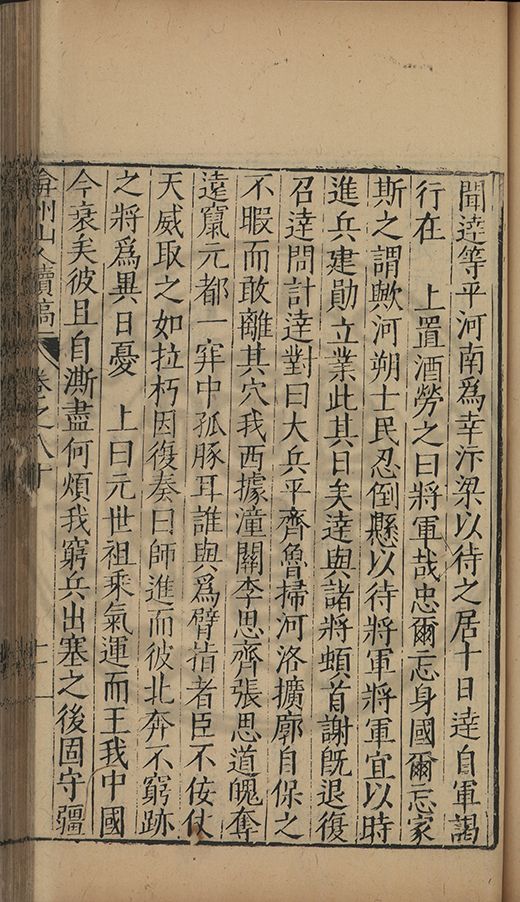 聞逹等平河南爲幸汴梁以待之居十日逹自軍謁
行在　上置酒勞之曰將軍哉忠爾忘身國爾忘家
斯之謂歟河朔士民忍倒縣以待將軍將軍宜以時
進兵建勛立業此其日矣逹與諸將頓首謝旣退復
召逹問計逹對曰大兵平齊魯掃河洛擴廓自保之
不暇而敢離其穴我西據潼關李思齊張思道魄奪
遠竄元都一穽中孤豚耳誰與爲臂指者臣不佞仗
天威取之如拉朽因復奏曰師進而彼北奔不窮跡
之將爲異日憂　上曰元世祖乘氣運而王我中國
今衰矣彼且自澌盡何煩我窮兵出塞之後固守疆
弇州山人續稿　卷之八十